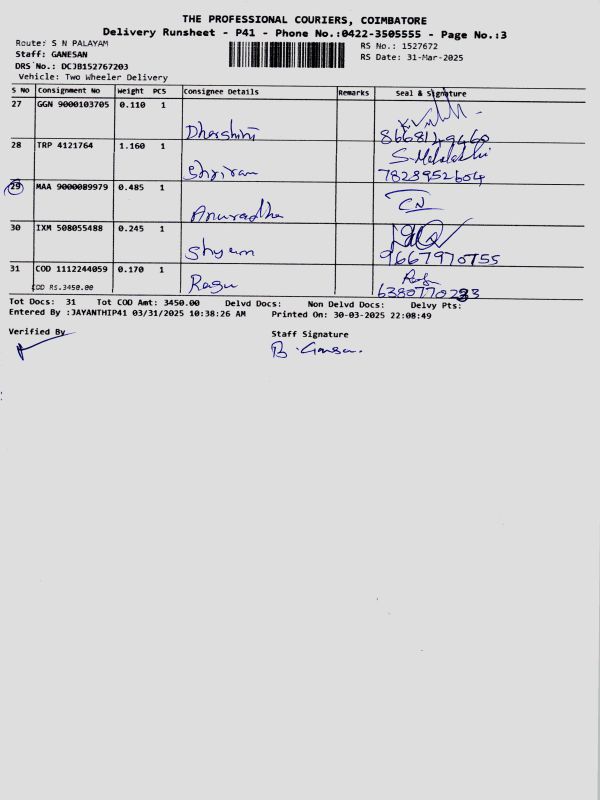 THE PROFESSIONAL COURIERS, COIMBATORE
Delivery Runsheet - P41 - Phone No.:0422-3505555 - Page No.:3
Route: S N PALAYAM
RS No.: 1527672
Staff: GANESAN
RS Date: 31-Mar-2025
DRS No.: DCJB152767203
Vehicle: Two Wheeler Delivery
S No Consignment No Weight PCS Consignee Details Remarks Seal & Signature
27 GGN 9000103705 0.110 1
Dharshini 8668149460
28 TRP 4121764 1.160 1
Shriram 7823952604
29 MAA 9000089979 0.485 1
Anuradha CN
30 IXM 508055488 0.245 1
Shyam 9667970755
31 COD 1112244059 0.170 1
COD RS.3450.00 Ragu
Tot Docs: 31 Tot COD Amt: 3450.00 Delvd Docs: Non Delvd Docs: Delvy Pts:
Entered By :JAYANTHIP41 03/31/2025 10:38:26 AM Printed On: 30-03-2025 22:08:49
Verified By
Staff Signature